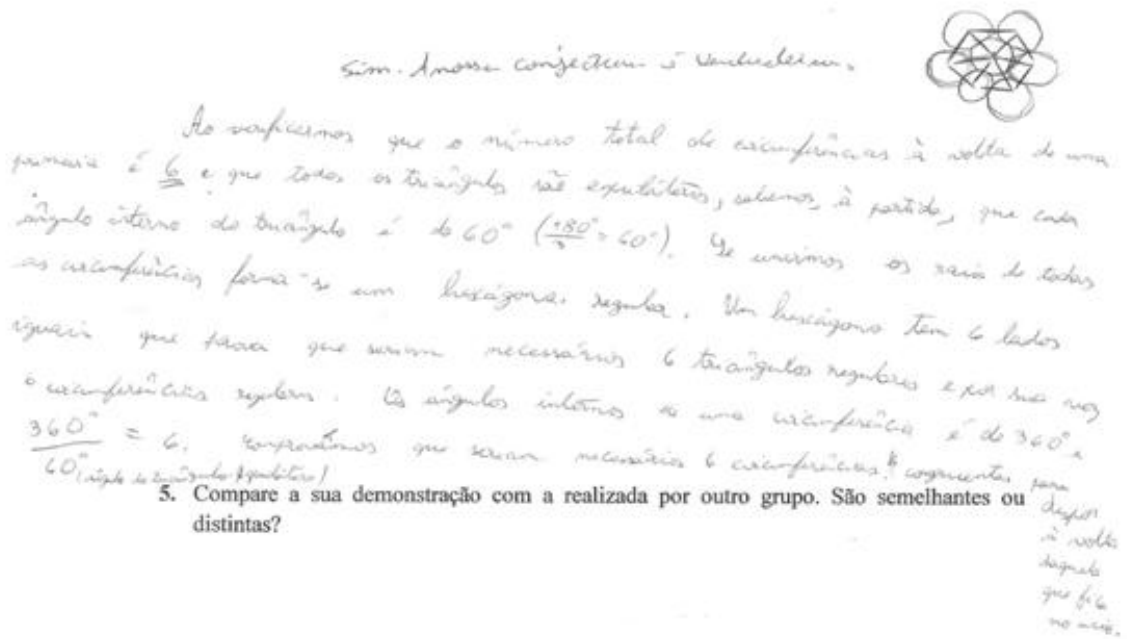 Sim. A nossa conjectura é verdadeira.
Ao verificarmos que o número total de circunferências à volta de uma
primeira é 6 e que todos os triângulos são equiláteros, sabemos, à partida, que cada
ângulo interno do triângulo é de 60° (180°/3 = 60°). Se unirmos os raios de todas
as circunferências forma-se um hexágono regular. Um hexágono tem 6 lados
iguais que prova que seriam necessários 6 triângulos regulares e por sua vez
6 circunferências regulares. Os ângulos internos a uma circunferência é de 360° e
360°/60° = 6. que seriam necessários 6 circunferências congruentes para
(ângulo do triângulo equilátero)
dispor
à volta
daquela
que fica
no meio.
5. Compare a sua demonstração com a realizada por outro grupo. São semelhantes ou
distintas?